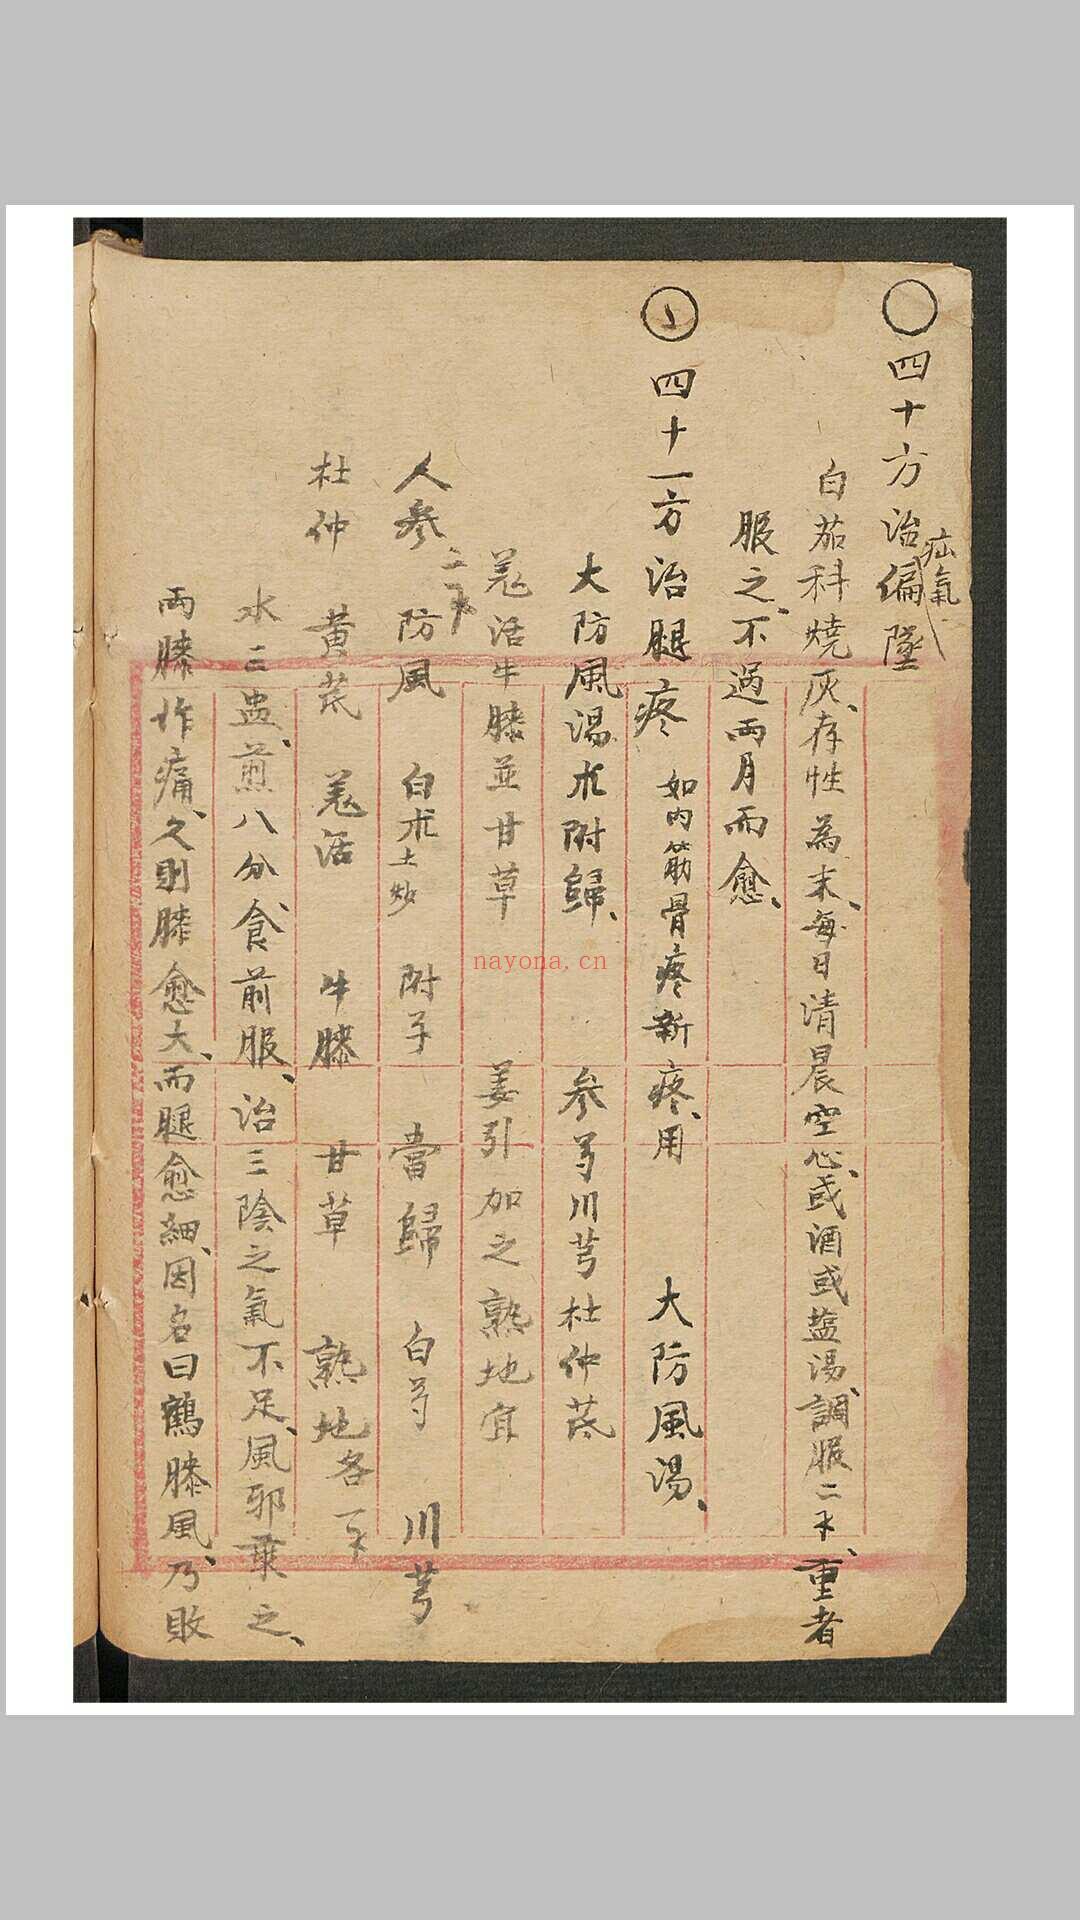 〇四十方治偏墜
疝氣
白茄科燒灰、存性為末、每日清晨空心、或酒或盐湯、調服二錢、重者
服之、不過兩月而愈、
四十一方治腿疼 如内筋骨疼新疼、用 大防風湯、
大防風湯朮附歸、 參芍川芎杜仲芪
羌活牛膝並甘草 姜引加之熟地宜
人參二錢 防風 白朮土炒 附子 當歸 白芍 川芎
杜仲 黃芪 羌活 牛膝 甘草 熟地各一錢
水二盅、煎八分、食前服、治三陰之氣不足、風邪乘之、
兩膝作痛、久則膝愈大、而腿愈細、因名曰鶴膝風、乃敗
nayona.cn